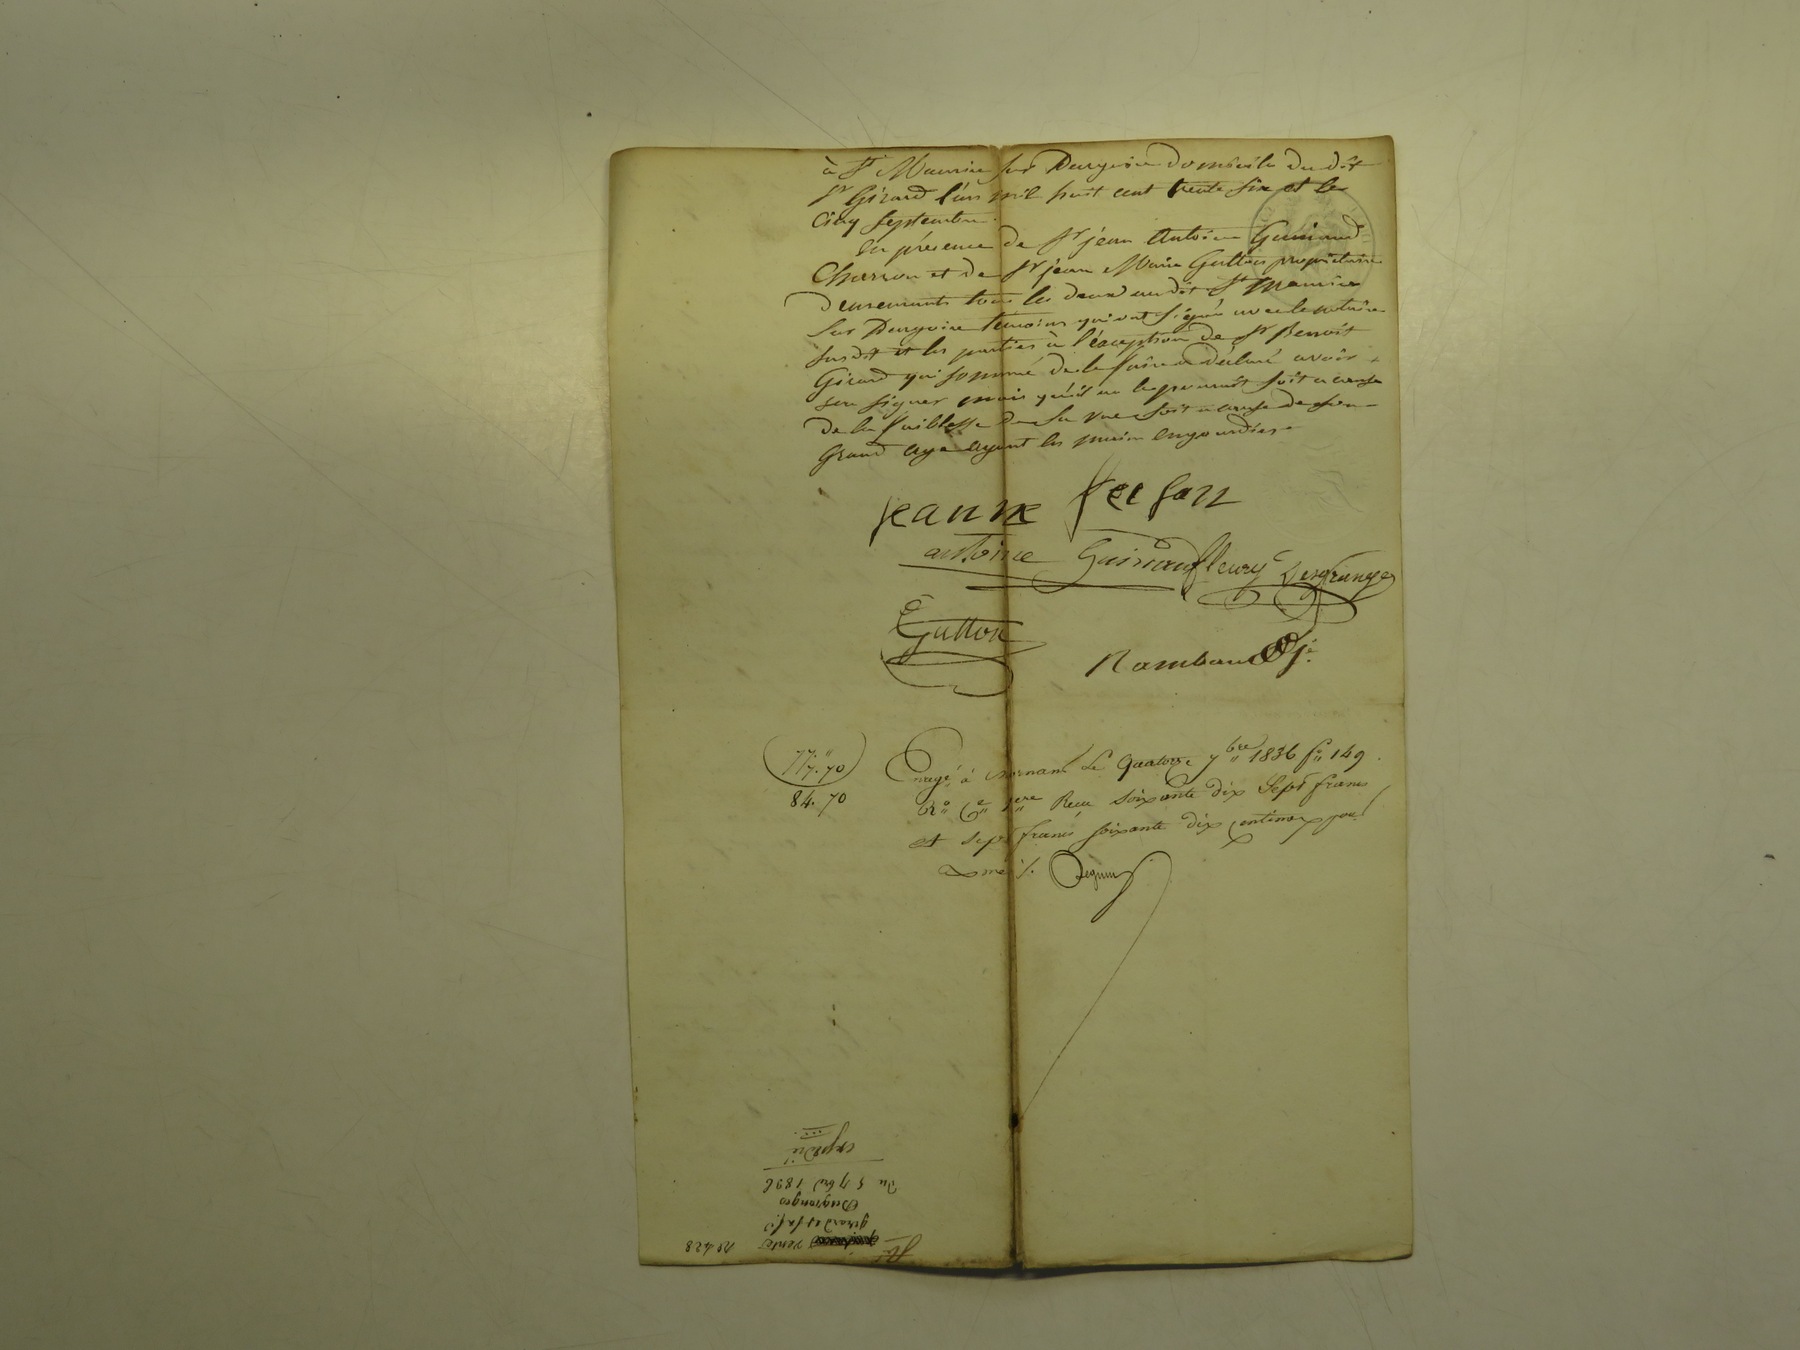 à St Maurice sur Dargoire domicile du dit
Sr Girard l'an mil huit cent trente six et le
cinq septembre.
En présence de Sr jean Antoine Guinand
Charron et de Sr jean Marie Gutton propriétaire
demeurants tous les deux audit St Maurice
sur Dargoire témoins qui ont signé avec le notaire
susdit et les parties à l'exception de Sr Benoit
Girard qui sommé de le faire a déclaré avoir
seu signer mais qu'il ne le pouvait soit a cause
de la faiblesse de sa vue soit a cause de son
grand age ayant les mains engourdies
jeanne
antoine Guinand fleury Desgranges
Gutton
Rambaud
77. "
7. 70
84. 70
Enregé à Mornant le Quatorze 7bre 1836 fo 149
Ro Ce 1ere Recu soixante dix sept francs
et sept francs soixante dix centimes pour
Xme
No 428
vente
girard et sa fe
Desgranges
Du 5 7bre 1836
expédié